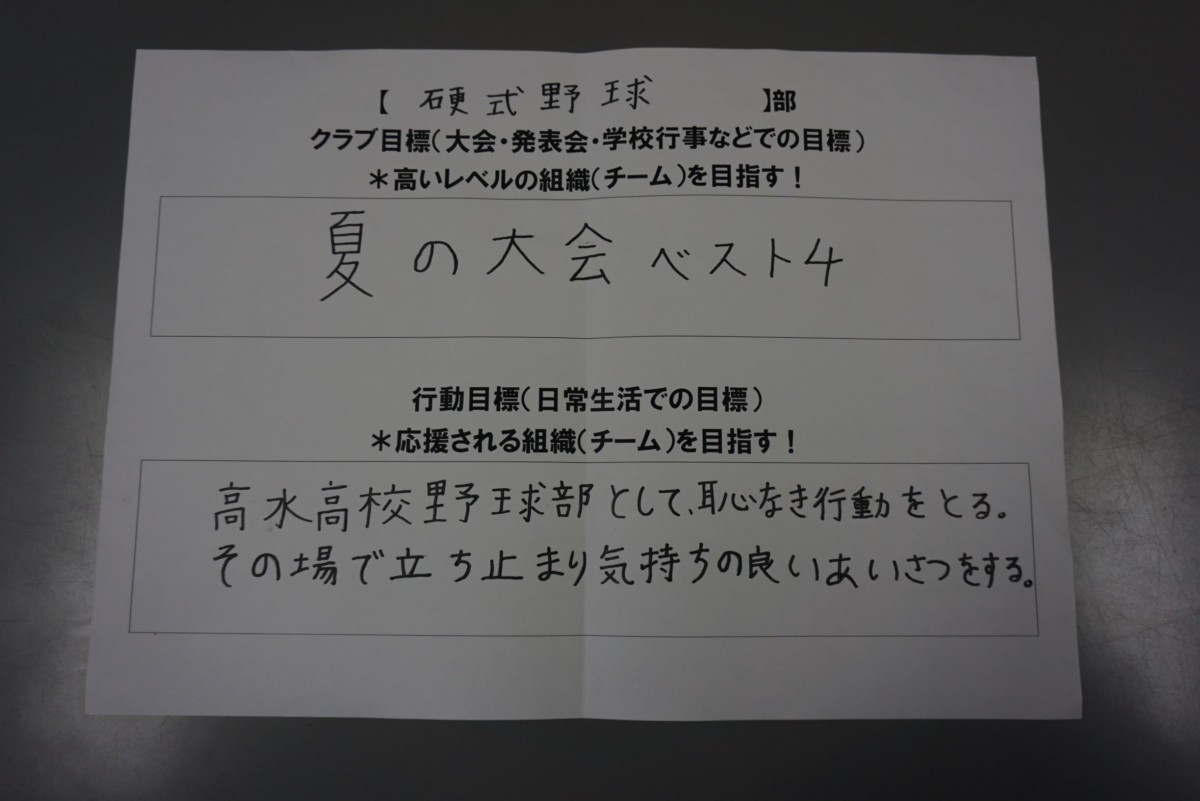 【 硬式野球 】部
クラブ目標(大会・発表会・学校行事などでの目標)
＊高いレベルの組織(チーム)を目指す！
夏の大会ベスト4
行動目標(日常生活での目標)
＊応援される組織(チーム)を目指す！
高水高校野球部として、恥なき行動をとる。
その場で立ち止まり気持ちの良いあいさつをする。